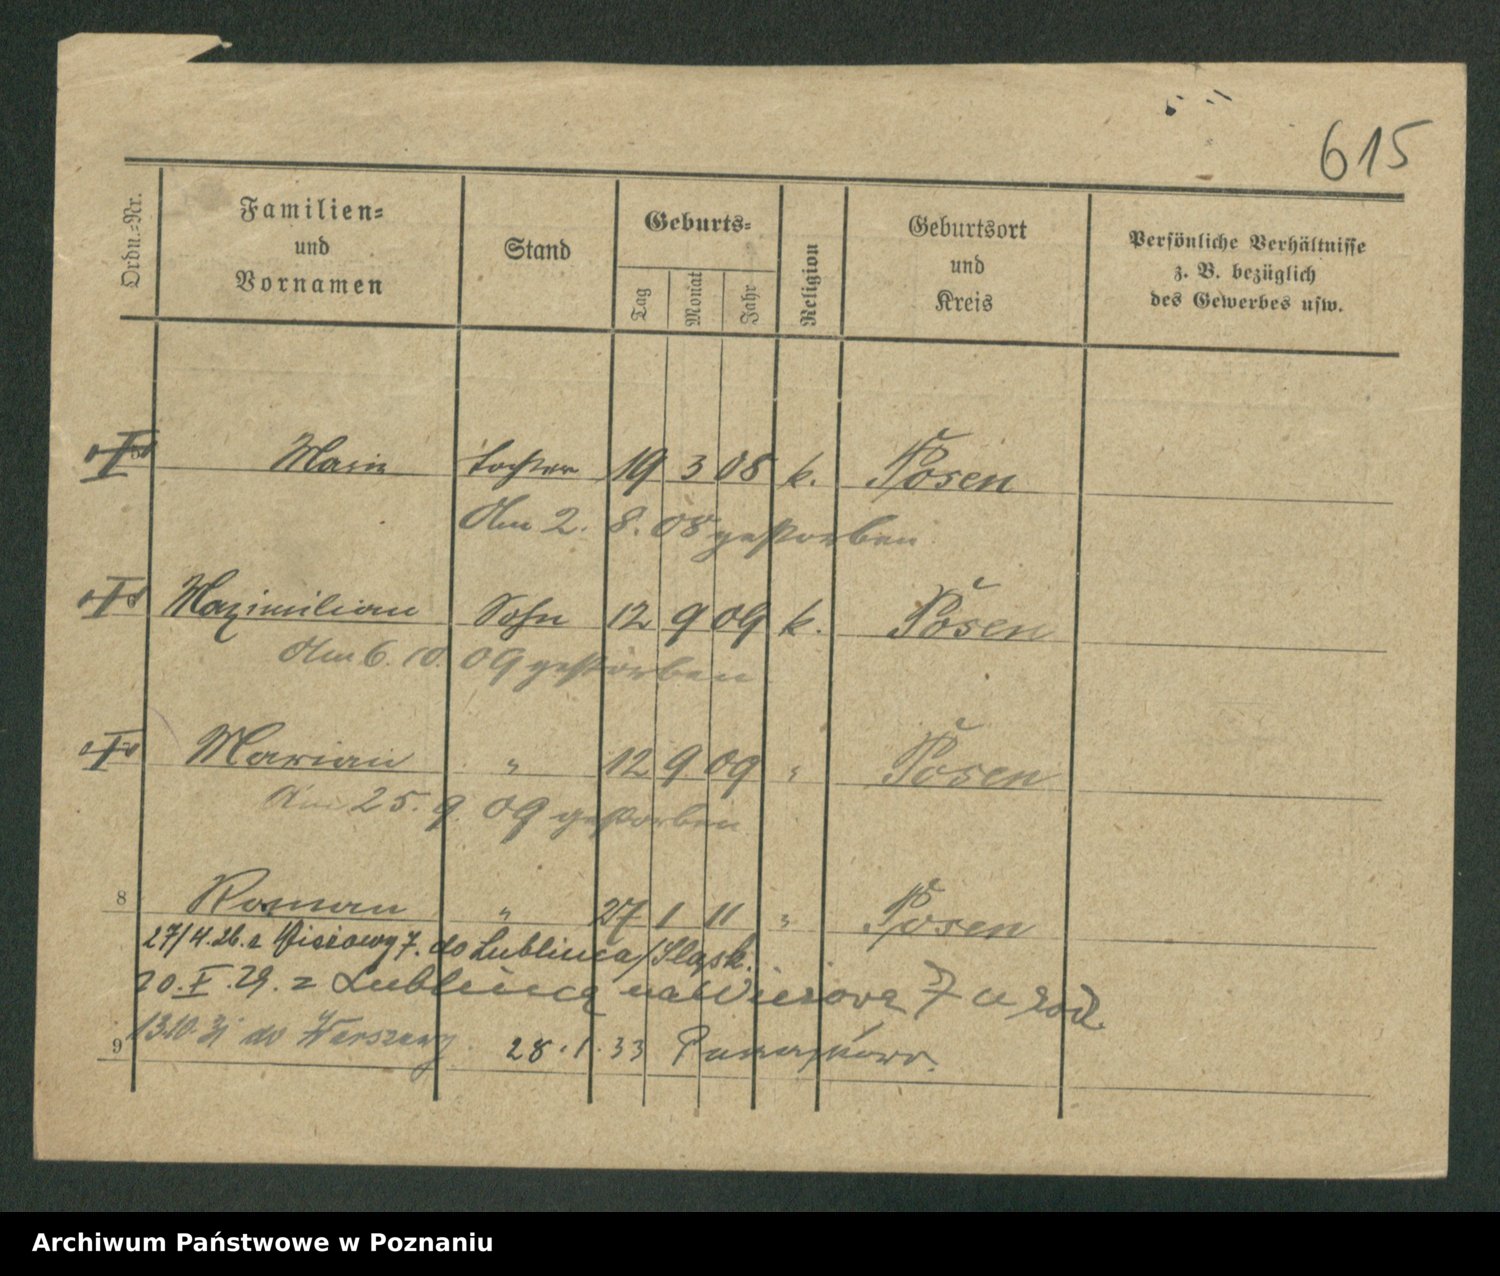 615
Ordn.=Nr. Familien= und Vornamen Stand Geburts= Tag Monat Jahr Religion Geburtsort und Kreis Persönliche Verhältnisse z. B. bezüglich des Gewerbes usw.
Marie Tochter 19 3 08 k. Posen
Am 2. 8. 08 gestorben
Maximilian Sohn 12 9 09 k. Posen
Am 6. 10. 09 gestorben
Marian " 12 9 09 " Posen
Am 25. 9. 09 gestorben
8 Roman " 27 1 11 " Posen
27/4.26. z 7. do Lublińca/Śląsk.
20.V.29. z Lublińca na 7 u rodz.
9 13.10.31 do Warszawy 28.1.33
Archiwum Państwowe w Poznaniu